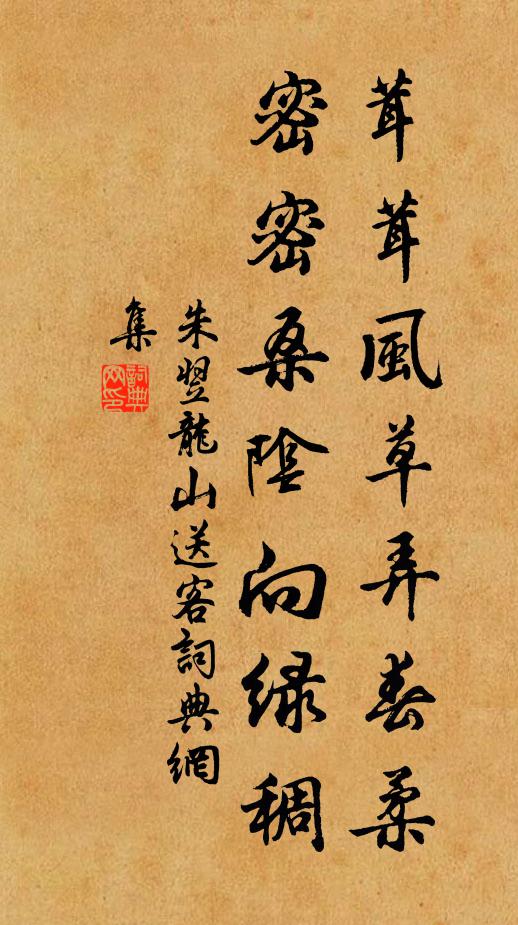 茸茸風草弄春柔
密密桑陰向綠稠
朱翌龍山送客詞典網
集
詞典
网印